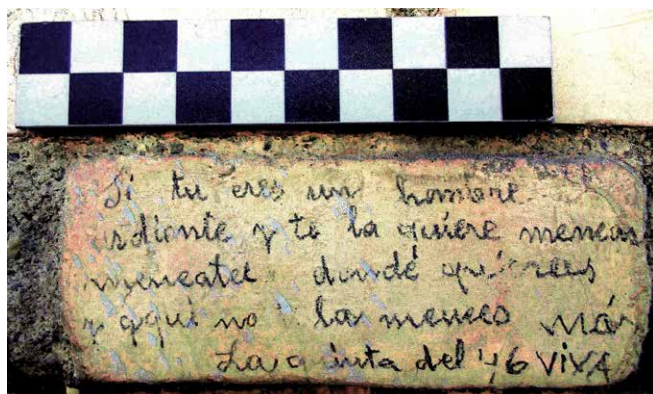 Si tu eres un hombre
ardiente y te la quiere menear
meneatel donde quieres
y aqui no la menees más
La quinta del 46 VIVA